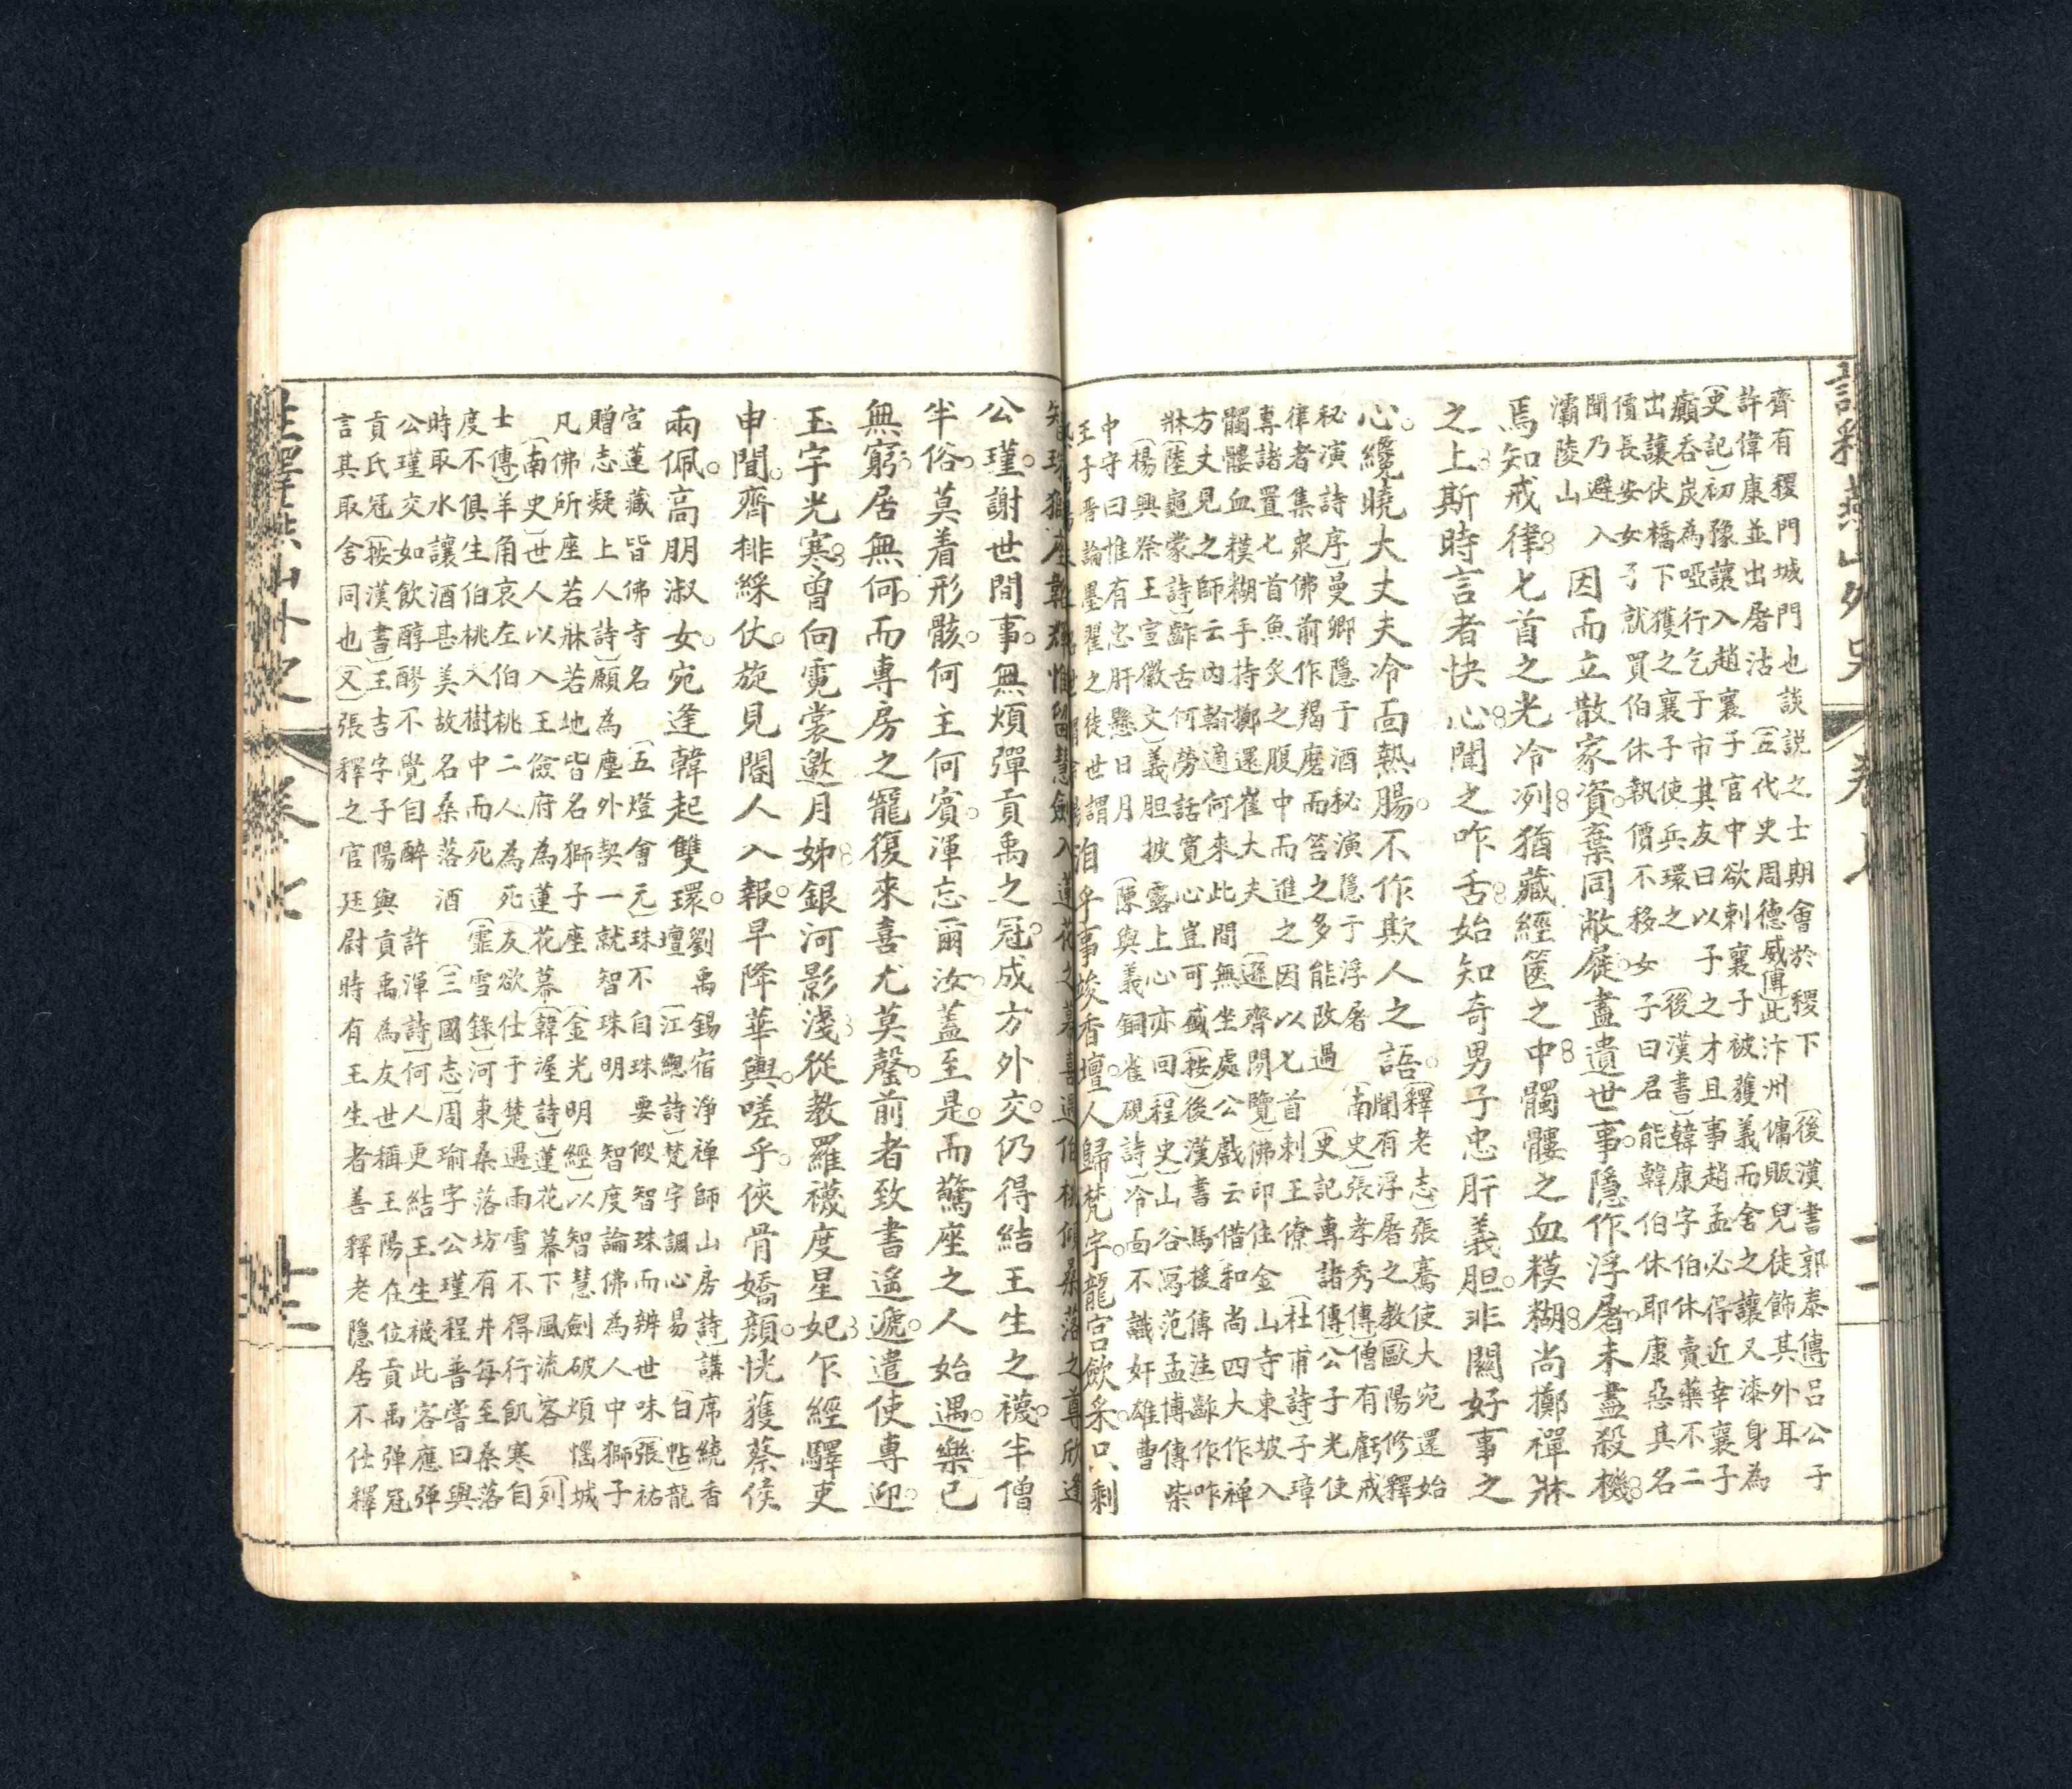 齊有稷門城門也談説之士期會於稷下 (後漢書郭泰傳)呂公子
許偉康並出屠沽 (五代史周德威傳)此汴州傭販兒徒飾其外耳
(史記)初豫讓入趙襄子官中欲刺襄子被獲義而舍之讓又漆身為
癩吞炭為啞行乞于市其友曰以子之才且事趙孟必得近幸襄子
出讓伏橋下獲之襄子使兵環之 (後漢書)韓康字伯休賣藥不二
價長安女子就買伯休執價不移女子曰君能韓伯休耶康惡其名
聞乃避入
灞陵山
因而立散家資。棄同敝屣。盡遺世事。隱作浮屠。未盡殺機
焉知戒律七首之光冷冽猶藏經篋之中髑髏之血糢糊尚擲禪牀
之上斯時言者快心聞之咋舌始知奇男子忠肝義胆。非關好事之
心。纔曉大丈夫冷面熱腸。不作欺人之語。
(釋老志)張騫使大宛還始
聞有浮屠之教(歐陽修釋
秘演詩序)曼卿隱于酒秘演隱于浮屠 (南史張孝秀傳)僧有虧戒
律者集衆佛前作羯磨而笞之多能改過 (史記專諸傳)公子光使
專諸置七首魚炙之腹中而進之因以七首刺王僚 (杜甫詩)子璋
髑髏血糢糊手持擲還崔大夫 (遯齊閒覽)佛印住金山寺東坡入
方丈見之師云內翰適何來此間無坐處公戲云借和尚四大作禪
牀(陸龜蒙詩)齚舌何勞話寬心豈可盛(按)後漢書馬援傳注齚作咋
(楊興祭王宣徽文)義胆披露上心亦回(程史)山谷寫范孟博傳柴
中守曰惟有忠肝懸日月 (陳與義銅雀硯詩)冷面不識奸雄曹
王子晋論墨翟之徒世謂
洎乎事竣香壇。人歸梵字。龍宮歛采。只剩
智珠獅座惟留慧劍入蓮花之幕喜遇伯桃傾桑落之尊欣逢
公瑾。謝世間事。無煩彈貢禹之冠。成方外交。仍得結王生之襪。半僧
半俗。莫着形骸。何主何賓。渾忘爾汝。蓋至是。而驚座之人始遇。樂已
無窮。居無何。而專房之寵復來喜尤莫罄。前者致書遙遞。遣使專迎。
玉宇光寒曾向霓裳邀月姊銀河影淺從教羅襪度星妃乍經驛吏
申間。齊排綵仗。旋見閽人入報。早降華輿。嗟乎。俠骨嬌顏。恍獲蔡侯
兩佩。高朋淑女。宛逢韓起雙環。
劉禹錫宿淨禪師山房詩)講席繞香
壇(江總詩)梵宇調心易 (白帖)龍
宮蓮藏皆佛寺名 (五燈會元)珠不自珠要假智珠而辨世味(張祐
贈志疑上人詩)願為塵外契一就智珠明 智度論佛為人中獅子
凡佛所座若牀若地皆名獅子座 (金光明經)以智慧劍破煩惱城
(南史)世人以入王儉府為蓮花幕(韓渥詩)蓮花幕下風流客 (列
士傳)羊角哀左伯桃二人為死友欲仕于楚遇雨雪不得行飢寒自
度不俱生伯桃入樹中而死 (霏雪錄)河東桑落坊有井每至桑落
時取水讓酒甚美故名桑落酒 (三國志)周瑜字公瑾程普嘗曰與
公瑾交如飲醇醪不覺自醉 許渾詩)何人更結王生襪此客應彈
貢氏冠(按漢書)王吉字子陽與貢禹為友世稱王陽在位貢禹彈冠
言其取舍同也(又)張釋之官廷尉時有王生者善釋老隱居不仕釋